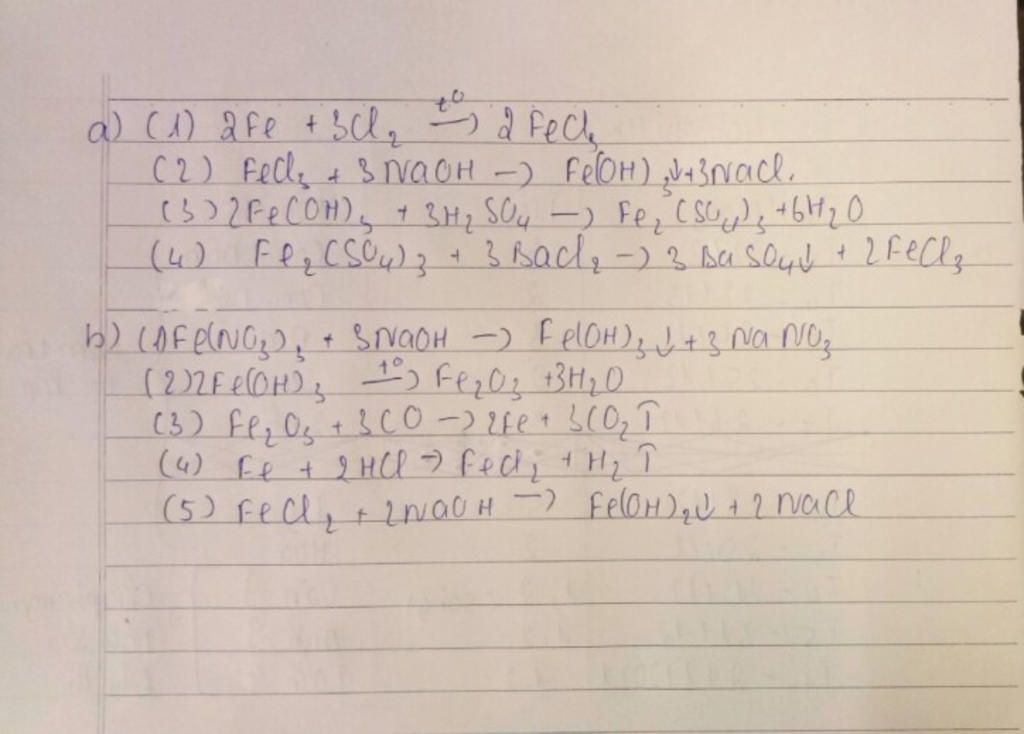 a) (1) 2Fe + 3Cl₂ —t⁰→ 2FeCl₃
(2) FeCl₃ + 3NaOH → Fe(OH)₃↓ + 3NaCl.
(3) 2Fe(OH)₃ + 3H₂SO₄ → Fe₂(SO₄)₃ + 6H₂O
(4) Fe₂(SO₄)₃ + 3BaCl₂ → 3BaSO₄↓ + 2FeCl₃
b) (1) Fe(NO₃)₃ + 3NaOH → Fe(OH)₃↓ + 3NaNO₃
(2) 2Fe(OH)₃ —t⁰→ Fe₂O₃ + 3H₂O
(3) Fe₂O₃ + 3CO → 2Fe + 3CO₂↑
(4) Fe + 2HCl → FeCl₂ + H₂↑
(5) FeCl₂ + 2NaOH → Fe(OH)₂↓ + 2NaCl